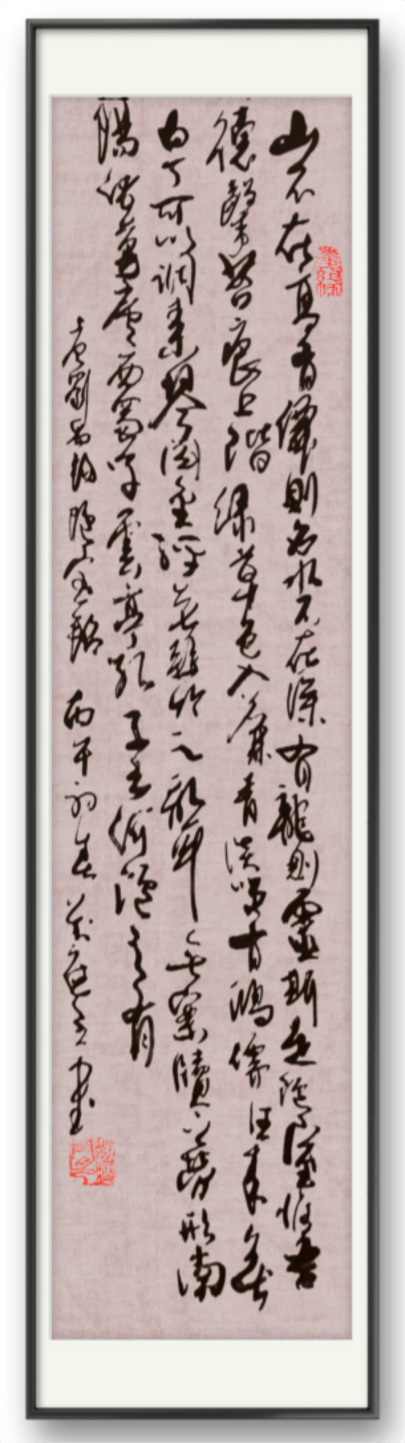 山不在高有僊則名水不在深有龍則靈斯是陋室惟吾
德馨苔痕上階綠草色入簾青談笑有鴻儒往來無
白丁可以調素琴閱金經無絲竹之亂耳無案牘之勞形南
陽諸葛廬西蜀子雲亭孔子云何陋之有
唐劉禹錫陋室銘 丙午初春 書